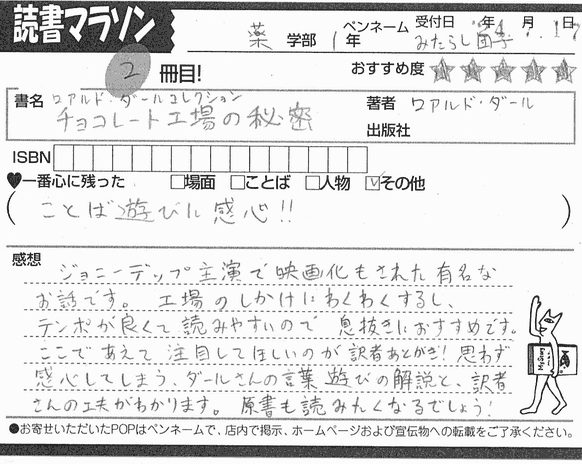 読書マラソン
薬 学部 1年 ペンネーム みたらし団子 受付日 年 月 日
2 冊目!
おすすめ度 ★★★★★
書名 ロアルド・ダールコレクション
チョコレート工場の秘密
著者 ロアルド・ダール
出版社
ISBN
♥一番心に残った □場面 □ことば □人物 ☑その他
(ことば遊びに感心!!)
感想
ジョニーデップ主演で映画化もされた有名な
お話です。工場のしかけにわくわくするし、
テンポが良くて読みやすいので息抜きにおすすめです。
ここであえて注目してほしいのが訳者あとがき!思わず
感心してしまう、ダールさんの言葉遊びの解説と、訳者
さんの工夫がわかります。原書も読みたくなるでしょう!
●お寄せいただいたPOPはペンネームで、店内で掲示、ホームページおよび宣伝物への転載をご了承ください。